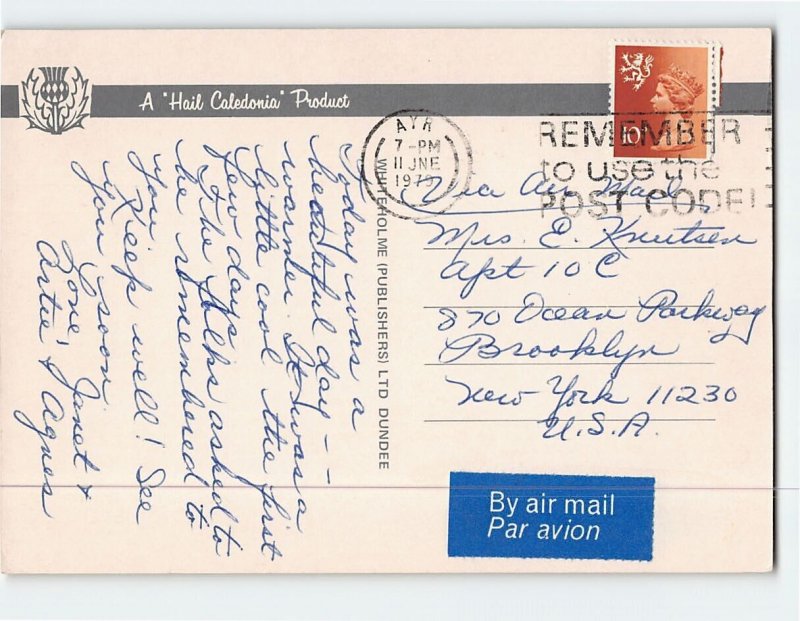 A "Hail Caledonia" Product
Today was a
beautiful day - -
warmer. It was a
little cool the first
few days.
The folks asked to
be remembered to
you.
Keep well! See
you soon.
Love, Janet &
Artie & Agnes
WHITEHOLME (PUBLISHERS) LTD DUNDEE
AYR
7-PM
11 JNE
1979
REMEMBER
to use the
POST CODE!
10p
Via Air Mail
Mrs. E. Knutsen
Apt 10C
870 Ocean Parkway
Brooklyn
New York 11230
U.S.A.
By air mail
Par avion